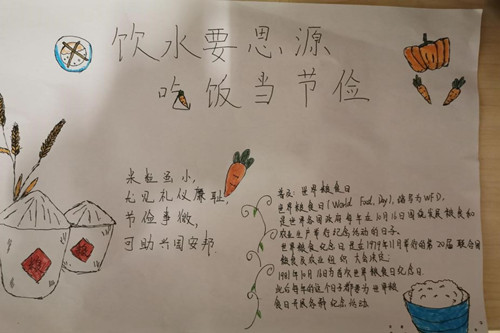 饮水要思源
吃饭当节俭
米粒虽小,
尤见礼仪廉耻,
节俭事微,
可助兴国安邦.
世界粮食日
世界粮食日(World Food Day),缩写为WFD,
是世界各国政府每年在10月16日围绕发展粮食和
农业生产举行纪念活动的日子.
世界粮食纪念日,是在1979年11月举行的第20届联合国
粮食及农业组织大会决定:
1981年10月16日为首次世界粮食日纪念日.
此后每年的这个日子都要为世界粮
食日开展各种纪念活动.